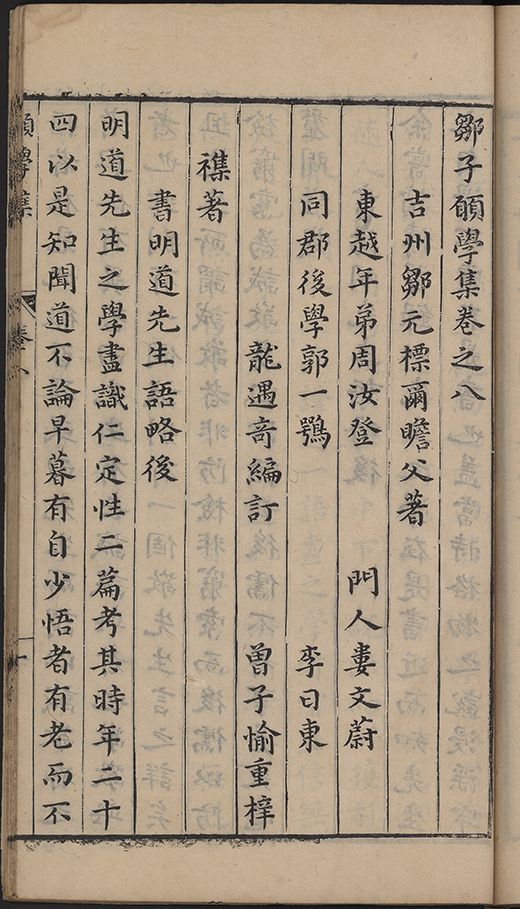 鄒子願學集卷之八
吉州鄒元標爾瞻父著
東越年弟周汝登 門人婁文蔚
同郡後學郭一鶚 李日東
龍遇奇編訂 曾子愉重梓
襍著
書明道先生語略後
明道先生之學盡識仁定性二篇考其時年二十
四以是知聞道不論早暮有自少悟者有老而不
願學集 卷八 一